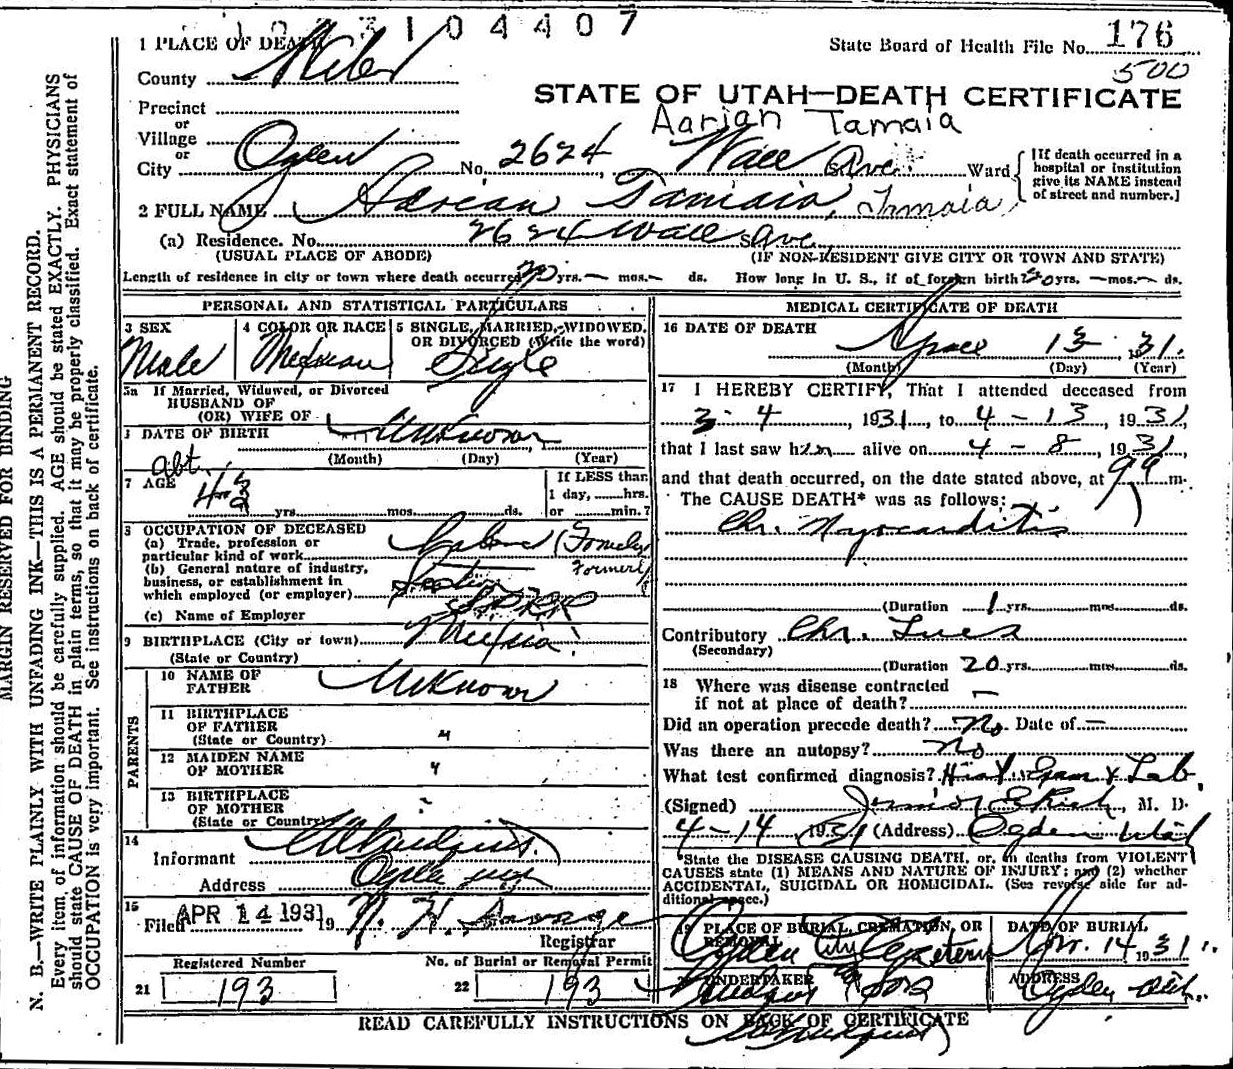 1 0 4 4 0 7
1 PLACE OF DEATH
State Board of Health File No. 176
500
County Weber
STATE OF UTAH—DEATH CERTIFICATE
Aarian Tamaia
Precinct
or
Village
or
City Ogden No. 2624 Wall Ave. Ward
[If death occurred in a hospital or institution give its NAME instead of street and number.]
2 FULL NAME Adrian Tamaia, Tamaia
(a) Residence. No. 2624 Wall Ave.
(USUAL PLACE OF ABODE) (IF NON-RESIDENT GIVE CITY OR TOWN AND STATE)
Length of residence in city or town where death occurred yrs. — mos. — ds. How long in U. S., if of foreign birth? yrs. — mos. — ds.
PERSONAL AND STATISTICAL PARTICULARS
3 SEX
Male
4 COLOR OR RACE
Mexican
5 SINGLE, MARRIED, WIDOWED, OR DIVORCED (Write the word)
Single
5a If Married, Widowed, or Divorced
HUSBAND OF
(OR) WIFE OF
DATE OF BIRTH Unknown
(Month) (Day) (Year)
abt.
7 AGE
yrs. mos. ds.
If LESS than
1 day, hrs.
or min.?
8 OCCUPATION OF DECEASED
(a) Trade, profession or
particular kind of work
(b) General nature of industry,
business, or establishment in
which employed (or employer)
Formerly
(c) Name of Employer S.P.R.R.
9 BIRTHPLACE (City or town)
(State or Country)
Mexico
PARENTS
10 NAME OF
FATHER Unknown
11 BIRTHPLACE
OF FATHER
(State or Country) "
12 MAIDEN NAME
OF MOTHER "
13 BIRTHPLACE
OF MOTHER
(State or Country)
14
Informant
Address
15
Filed APR 14 1931 19
Registrar
Registered Number No. of Burial or Removal Permit
21 193 22 193
MEDICAL CERTIFICATE OF DEATH
16 DATE OF DEATH
April 13 1931.
(Month) (Day) (Year)
17 I HEREBY CERTIFY, That I attended deceased from
3-4, 1931, to 4-13, 1931,
that I last saw him alive on 4-8, 1931,
and that death occurred, on the date stated above, at m.
The CAUSE DEATH* was as follows:
Chr. Myocarditis
(Duration 1 yrs. mos. ds.
Contributory Chr. Lues
(Secondary)
(Duration 20 yrs. mos. ds.
18 Where was disease contracted
if not at place of death? —
Did an operation precede death? No Date of —
Was there an autopsy? No
What test confirmed diagnosis? Hist. Exam & Lab.
(Signed) Junior E Rich, M. D.
4-14, 1931 (Address) Ogden Utah
*State the DISEASE CAUSING DEATH, or, in deaths from VIOLENT
CAUSES state (1) MEANS AND NATURE OF INJURY; and (2) whether
ACCIDENTAL, SUICIDAL OR HOMICIDAL. (See reverse side for ad-
ditional space.)
19 PLACE OF BURIAL, CREMATION, OR
REMOVAL
Ogden City Cemetery
DATE OF BURIAL
14 1931
UNDERTAKER
& Sons
ADDRESS
Ogden Utah
READ CAREFULLY INSTRUCTIONS ON BACK OF CERTIFICATE
MARGIN RESERVED FOR BINDING
N. B.—WRITE PLAINLY WITH UNFADING INK—THIS IS A PERMANENT RECORD.
Every item of information should be carefully supplied. AGE should be stated EXACTLY. PHYSICIANS
should state CAUSE OF DEATH in plain terms, so that it may be properly classified. Exact statement of
OCCUPATION is very important. See instructions on back of certificate.